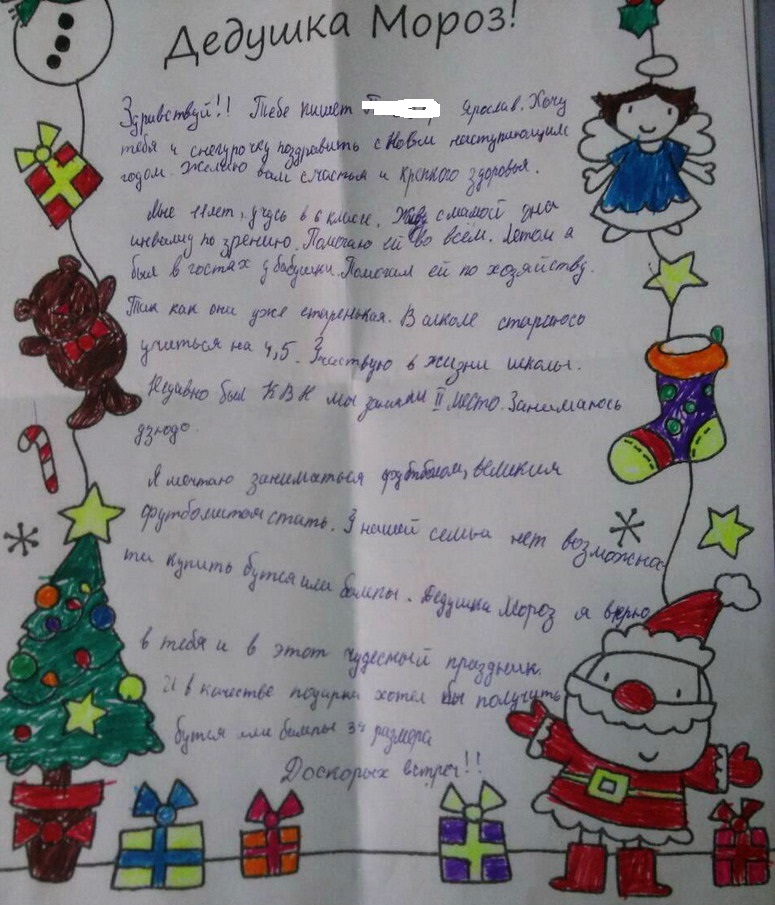 Дедушка Мороз!
Здравствуй!! Тебе пишет Ярослав. Хочу
тебя и снегурочку поздравить с Новым наступающим
годом. Желаю вам счастья и крепкого здоровья.
Мне 11 лет, учусь в 6 классе. Живу с мамой она
инвалид по зрению. Помогаю ей во всём. Летом я
был в гостях у бабушки. Помогал ей по хозяйству.
Так как они уже старенькая. В школе стараюсь
учиться на 4,5. Участвую в жизни школы.
Недавно был КВН мы заняли II место. Занимаюсь
дзюдо.
Я мечтаю заниматься футболом, великим
футболистом стать. У нашей семьи нет возможно-
ти купить бутсы или бампы. Дедушка Мороз я верю
в тебя и в этот чудесный праздник.
И в качестве подарка хотел бы получить
бутся или бампы 34 размера
Доскорых встреч!!